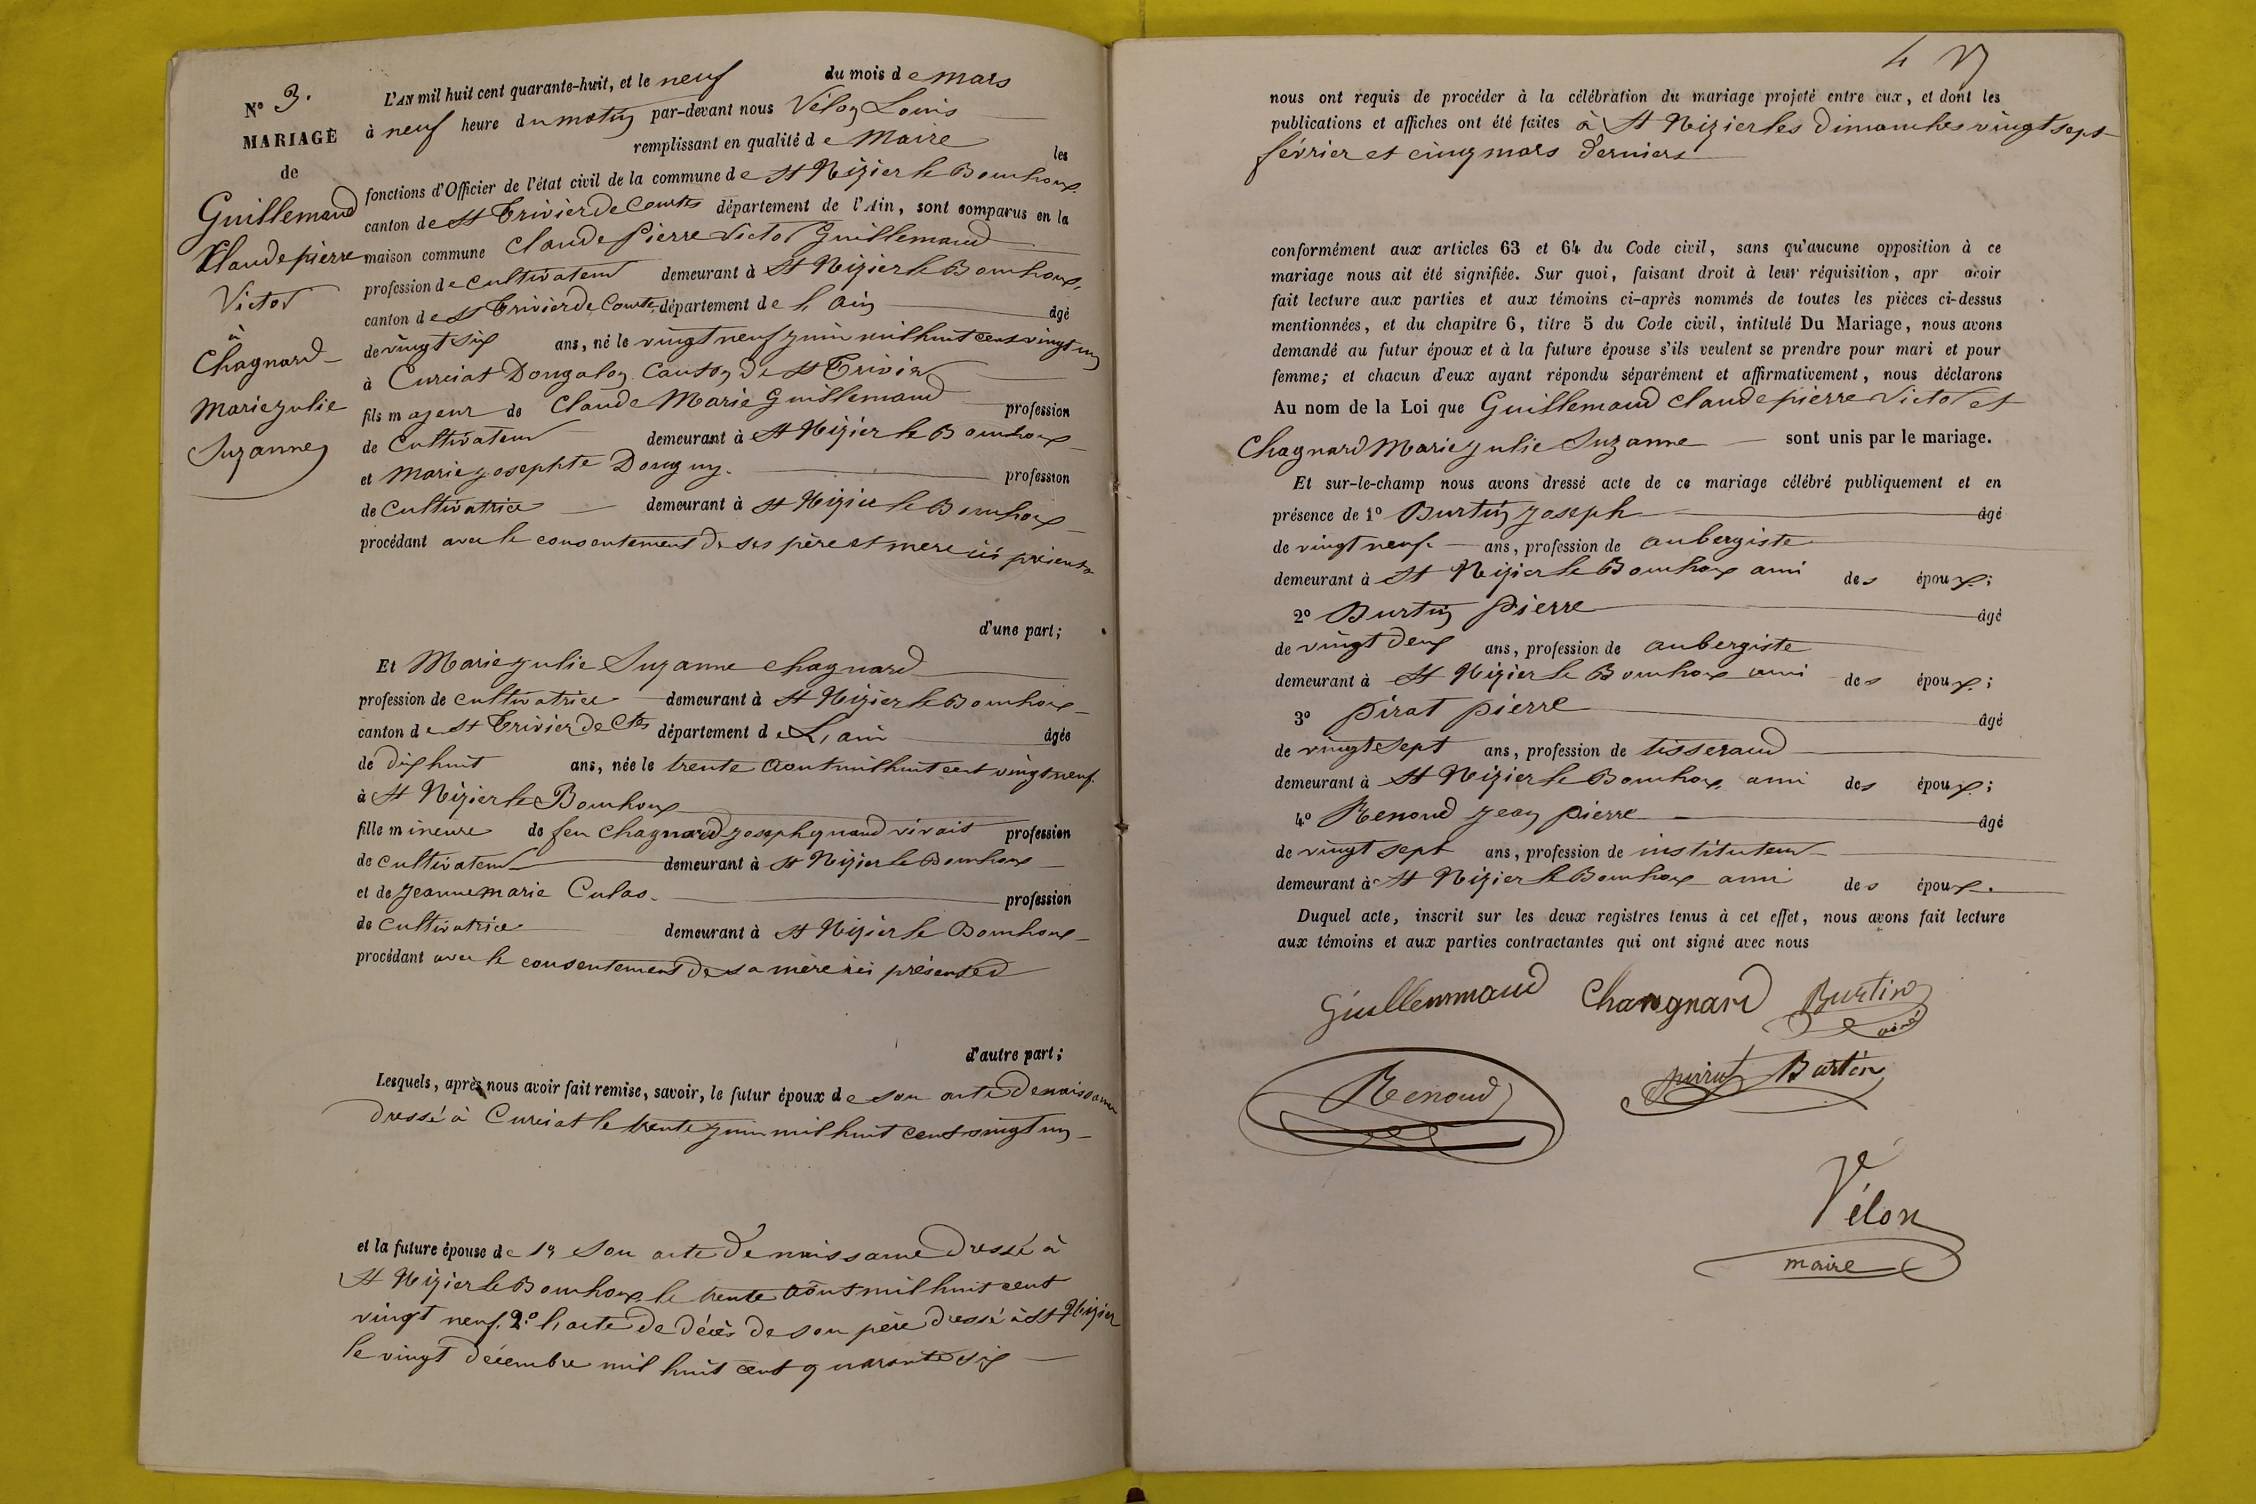 N° 3.
MARIAGE
de
Guillemaud
Claude pierre
Victor
à
Chagnard
Marie julie
Suzanne
L'AN mil huit cent quarante-huit, et le neuf du mois de mars
à neuf heure du matin par-devant nous Vélon Louis
remplissant en qualité de Maire les
fonctions d'Officier de l'état civil de la commune de St Nizier le Bouchoux
canton de St Trivier de Courtes département de l'Ain, sont comparus en la
maison commune Claude Pierre Victor Guillemaud
profession de cultivateur demeurant à St Nizier le Bouchoux,
canton de St Trivier de Courtes département de l'Ain âgé
de vingt six ans, né le vingt neuf juin mil huit cent vingt un
à Curciat Dongalon canton de St Trivier
fils majeur de Claude Marie Guillemaud profession
de Cultivateur demeurant à St Nizier le Bouchoux
et Marie josephte Douguy. profession
de Cultivatrice demeurant à St Nizier le Bouchoux
procédant avec le consentement de ses père et mere ici présents
d'une part;
Et Marie julie Suzanne Chagnard
profession de cultivatrice demeurant à St Nizier le Bouchoux
canton de St Trivier de Ctes département de L'ain âgée
de dix huit ans, née le trente Aout mil huit cent vingt neuf
à St Nizier le Bouhoux
fille mineure de feu Chagnard joseph quand vivait profession
de cultivateur demeurant à St Nizier le Bouchoux
et de jeanne marie Culas. profession
de Cultivatrice demeurant à St Nizier le Bouhoux
procédant avec le consentement de sa mère ici présente
d'autre part;
Lesquels, après nous avoir fait remise, savoir, le futur époux de son acte de naissance
dressé à Curciat le trente juin mil huit cent vingt un
et la future épouse de 1° son acte de naissance dressé à
St Nizier le Bouhoux le trente Août mil huit cent
vingt neuf. 2° l'acte de décès de son père dressé à St Nizier
le vingt décembre mil huit cent quarante six
nous ont requis de procéder à la célébration du mariage projeté entre eux, et dont les
publications et affiches ont été faites à St Nizier les dimanches vingt sept
février et cinq mars derniers
conformément aux articles 63 et 64 du Code civil, sans qu'aucune opposition à ce
mariage nous ait été signifiée. Sur quoi, faisant droit à leur réquisition, apr avoir
fait lecture aux parties et aux témoins ci-après nommés de toutes les pièces ci-dessus
mentionnées, et du chapitre 6, titre 5 du Code civil, intitulé Du Mariage, nous avons
demandé au futur époux et à la future épouse s'ils veulent se prendre pour mari et pour
femme; et chacun d'eux ayant répondu séparément et affirmativement, nous déclarons
Au nom de la Loi que Guillemaud Claude pierre Victor et
Chagnard Marie julie Suzanne sont unis par le mariage.
Et sur-le-champ nous avons dressé acte de ce mariage célébré publiquement et en
présence de 1° Burtin joseph âgé
de vingt neuf ans, profession de aubergiste
demeurant à St Nizier le Bouhoux ami des époux;
2° Burtin Pierre âgé
de vingt deux ans, profession de aubergiste
demeurant à St Nizier le Bouhoux ami des époux;
3° Pirat pierre âgé
de vingt sept ans, profession de tisserand
demeurant à St Nizier le Bouhoux ami des époux;
4° Renoud jean pierre âgé
de vingt sept ans, profession de instituteur
demeurant à St Nizier le Bouhoux ami des époux.
Duquel acte, inscrit sur les deux registres tenus à cet effet, nous avons fait lecture
aux témoins et aux parties contractantes qui ont signé avec nous
Guillemmaud Changnard Burtin
ainé
Renoud Burtin
Vélon
maire